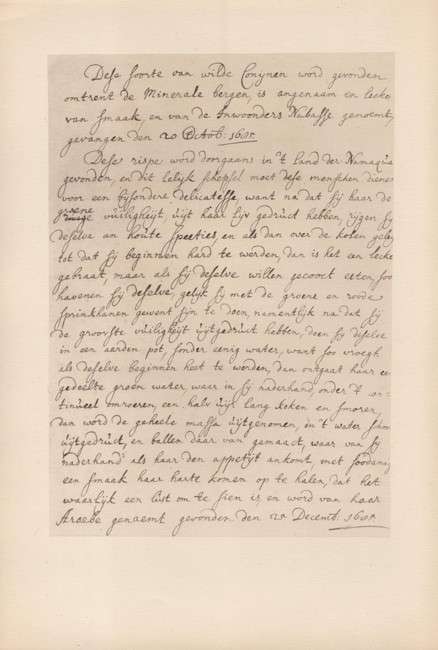 Dese soorte van wilde Conynen word gevonden
omtrent de Minerale bergen, is angenaam en lecker
van smaak, en van de Inwoonders Nubasse genoemt,
gevangen den 20 Octob: 1685.
Dese rispe word doorgaans in 't land der Namaqua
gevonden, en dit lelijk schepsel moet dese menschen dienen
voor een bysondere delicatesse, want na dat sij haar de
groene
vuiligheyt uyt haar lijv gedruct hebben, rijgen sij
deselve an houte speeties, en als dan over de kolen geleyt
tot dat sij beginnen hard te werden, dan is het een lecker
gebraat, maar als sij deselve willen gecooct eeten, soo
havenen sij deselve, gelijk sij met de groene en roode
sprinkhanen gewent sijn te doen, namentlik na dat sij
de groovste vuiligheyt uijtgedruct hebben, doen sij deselve
in een aerden pot, sonder eenig water, want soo vroegh
als deselve beginnen heet te worden, dan ontgaat haar een
gedeelte groen water, waar in sij naderhand, onder 't con-
tinueel omroeren, een halv uijr lang koken en smoren,
dan word de geheele massa uijtgenomen, in 't water
uijtgedruct, en ballen daar van gemaact, waar van sij
naderhand als haar den appetyt ankomt, met
een smaak haar harte komen op te halen, dat het
waarlijk een lust om te sien is, en word van haar
Aroebe genaemt gevonden den 25 Decemb: 1685.